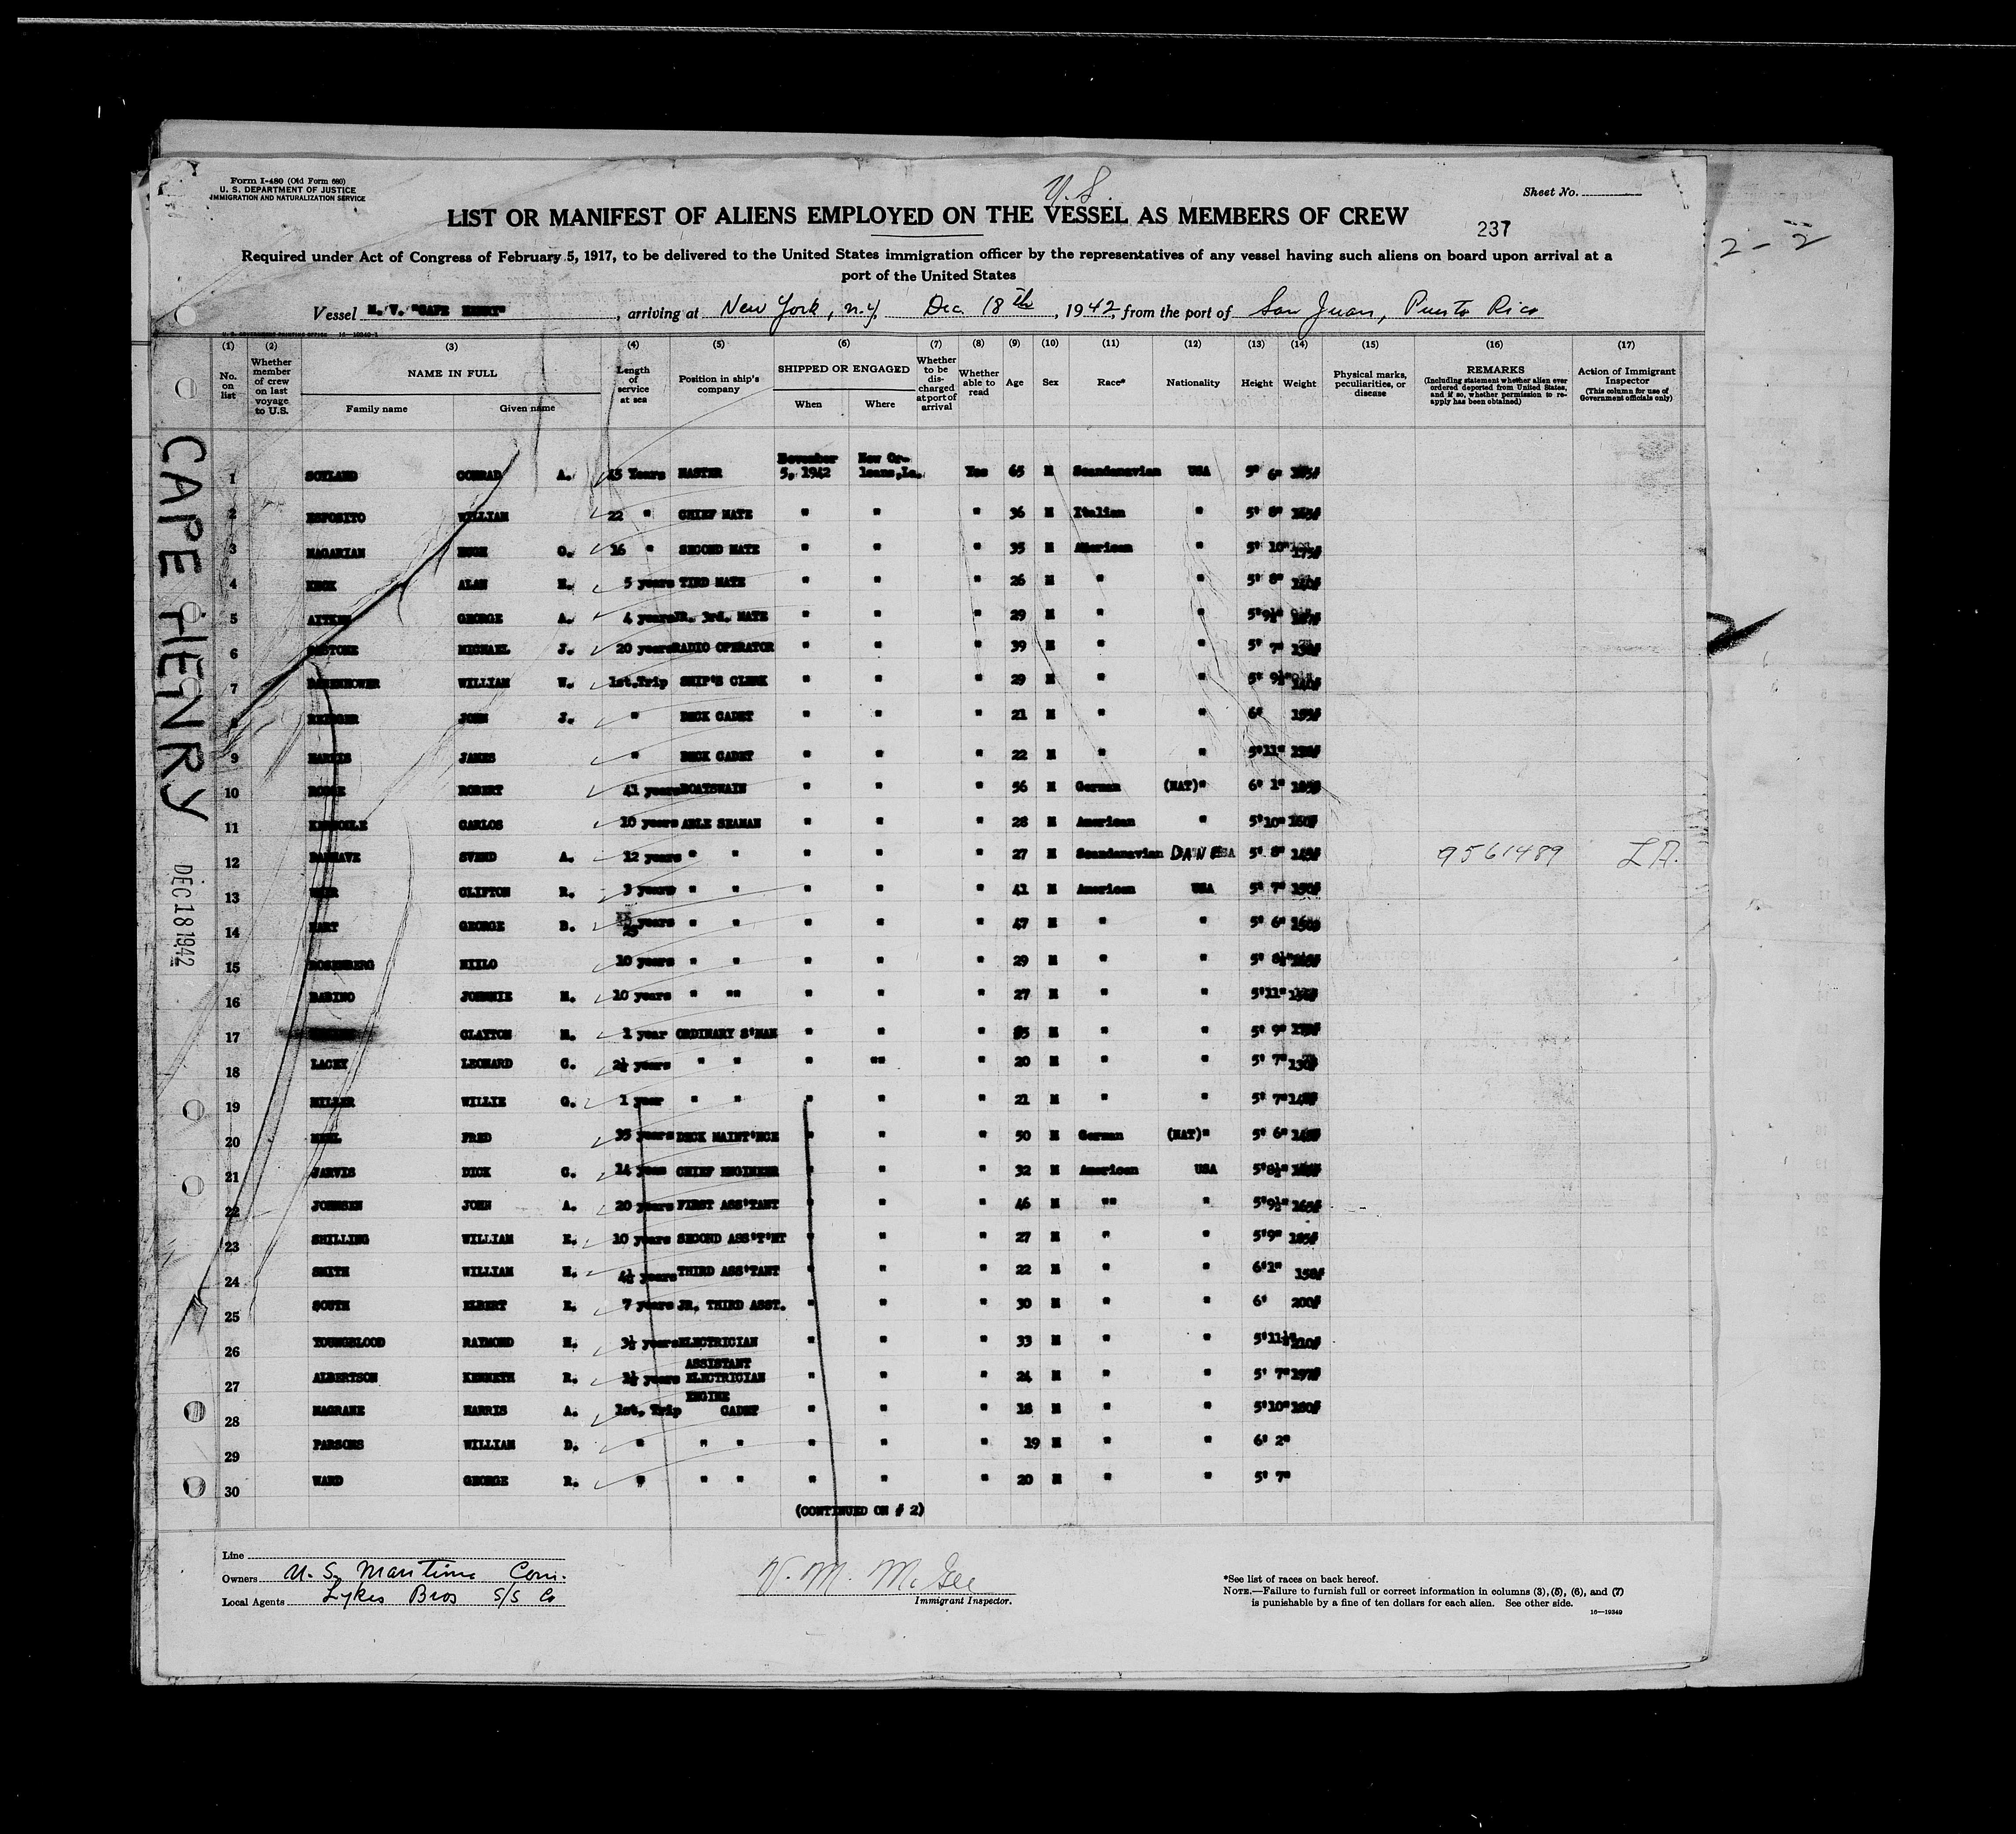 Form I-480 (Old Form 680)
U. S. DEPARTMENT OF JUSTICE
IMMIGRATION AND NATURALIZATION SERVICE
U.S.
Sheet No.
LIST OR MANIFEST OF ALIENS EMPLOYED ON THE VESSEL AS MEMBERS OF CREW
237
2-2
Required under Act of Congress of February 5, 1917, to be delivered to the United States immigration officer by the representatives of any vessel having such aliens on board upon arrival at a
port of the United States
Vessel M. V. "CAPE HENRY", arriving at New York, n.y. Dec. 18th, 1942, from the port of San Juan, Puerto Rico
(1) (2) (3) (4) (5) (6) (7) (8) (9) (10) (11) (12) (13) (14) (15) (16) (17)
No. on list
Whether member of crew on last voyage to U.S.
NAME IN FULL
Family name Given name
Length of service at sea
Position in ship's company
SHIPPED OR ENGAGED
When Where
Whether to be discharged at port of arrival
Whether able to read
Age
Sex
Race*
Nationality
Height
Weight
Physical marks, peculiarities, or disease
REMARKS
(Including statement whether alien ever ordered deported from United States, and if so, whether permission to reapply has been obtained)
Action of Immigrant Inspector
(This column for use of Government officials only)
CAPE HENRY
DEC 18 1942
1 CONRAD A. Years MASTER November 5, 1942 New Orleans,La. Yes 65 M Scandanavian USA 5' 6"
2 ESPOSITO WILLIAM 22 " CHIEF MATE " " " 36 M Italian " 5' 8"
3 MAGARIAN HUGH O. 16 " SECOND MATE " " " 35 M American " 5' 10" 175#
4 KECK ALAN 5 years TIRD MATE " " " 26 M " " 5' 8"
5 AITKEN GEORGE A. 4 years JR. 3rd. MATE " " " 29 M " " 5'9½"
6 MICHAEL J. 20 years RADIO OPERATOR " " " 39 M " " 5' 7"
7 WILLIAM W. 1st.Trip SHIP'S CLERK " " " 29 M " " 5' 9½" 140#
8 JOHN J. " DECK CADET " " " 21 M " " 6'
9 HARRIS JAMES " DECK CADET " " " 22 M " " 5'11"
10 ROBERT 41 years BOATSWAIN " " " 56 M German (NAT)" 6' 1"
11 CARLOS 10 years ABLE SEAMAN " " " 28 M American " 5'10" 160#
12 SVEND A. 12 years " " " " " 27 M Scandanavian DAN 5' 8" 9561489 L.A.
13 CLIFTON R. 3 years " " " " " 41 M American USA 5' 7"
14 HART GEORGE B. years " " " " " 47 M " " 5' 6"
15 ROSENBERG NIILO 10 years " " " " " 29 M " " 5' 8½"
16 BABINO JOHNNIE 10 years " "" " " " 27 M " " 5'11"
17 CLAYTON 1 year ORDINARY S'MAN " " " M " " 5' 9"
18 LACEY LEONARD C. 2½ years " " " "" " 20 M " " 5' 7" 130#
19 MILLER WILLIE G. 1 year " " " " " 21 M " " 5' 7"
20 FRED 35 years DECK MAINT'NCE " " " 50 M German (NAT)" 5' 6"
21 JARVIS DICK C. 14 years CHIEF ENGINEER " " " 32 M American USA 5'8½"
22 JOHNSEN JOHN A. 20 years FIRST ASS'TANT " " " 46 M "" " 5'9½" 165#
23 SHILLING WILLIAM E. 10 years SECOND ASS'T'NT " " " 27 M " " 5'9" 185#
24 SMITH WILLIAM 4½ years THIRD ASS'TANT " " " 22 M " " 6'1" 150#
25 SOUTH ELBERT E. 7 years JR. THIRD ASST. " " " 30 M " " 6' 200#
26 YOUNGBLOOD RAYMOND 3½ years ELECTRICIAN " " " 33 M " " 5'11½" 210#
27 ALBERTSON KENNETH R. years ASSISTANT ELECTRICIAN " " " 24 M " " 5' 7"
28 MAGRANE HARRIS A. 1st. Trip ENGINE CADET " " " 18 M " " 5'10" 160#
29 PARSONS WILLIAM D. " " " " " " 19 M " " 6' 2"
30 WARD GEORGE R. " " " " " " 20 M " " 5' 7"
(CONTINUED ON # 2)
Line
Owners U. S. Maritime Com.
Local Agents Lykes Bros S/S Co
V. M. McGee
Immigrant Inspector.
*See list of races on back hereof.
NOTE.—Failure to furnish full or correct information in columns (3), (5), (6), and (7)
is punishable by a fine of ten dollars for each alien. See other side.
16—19349